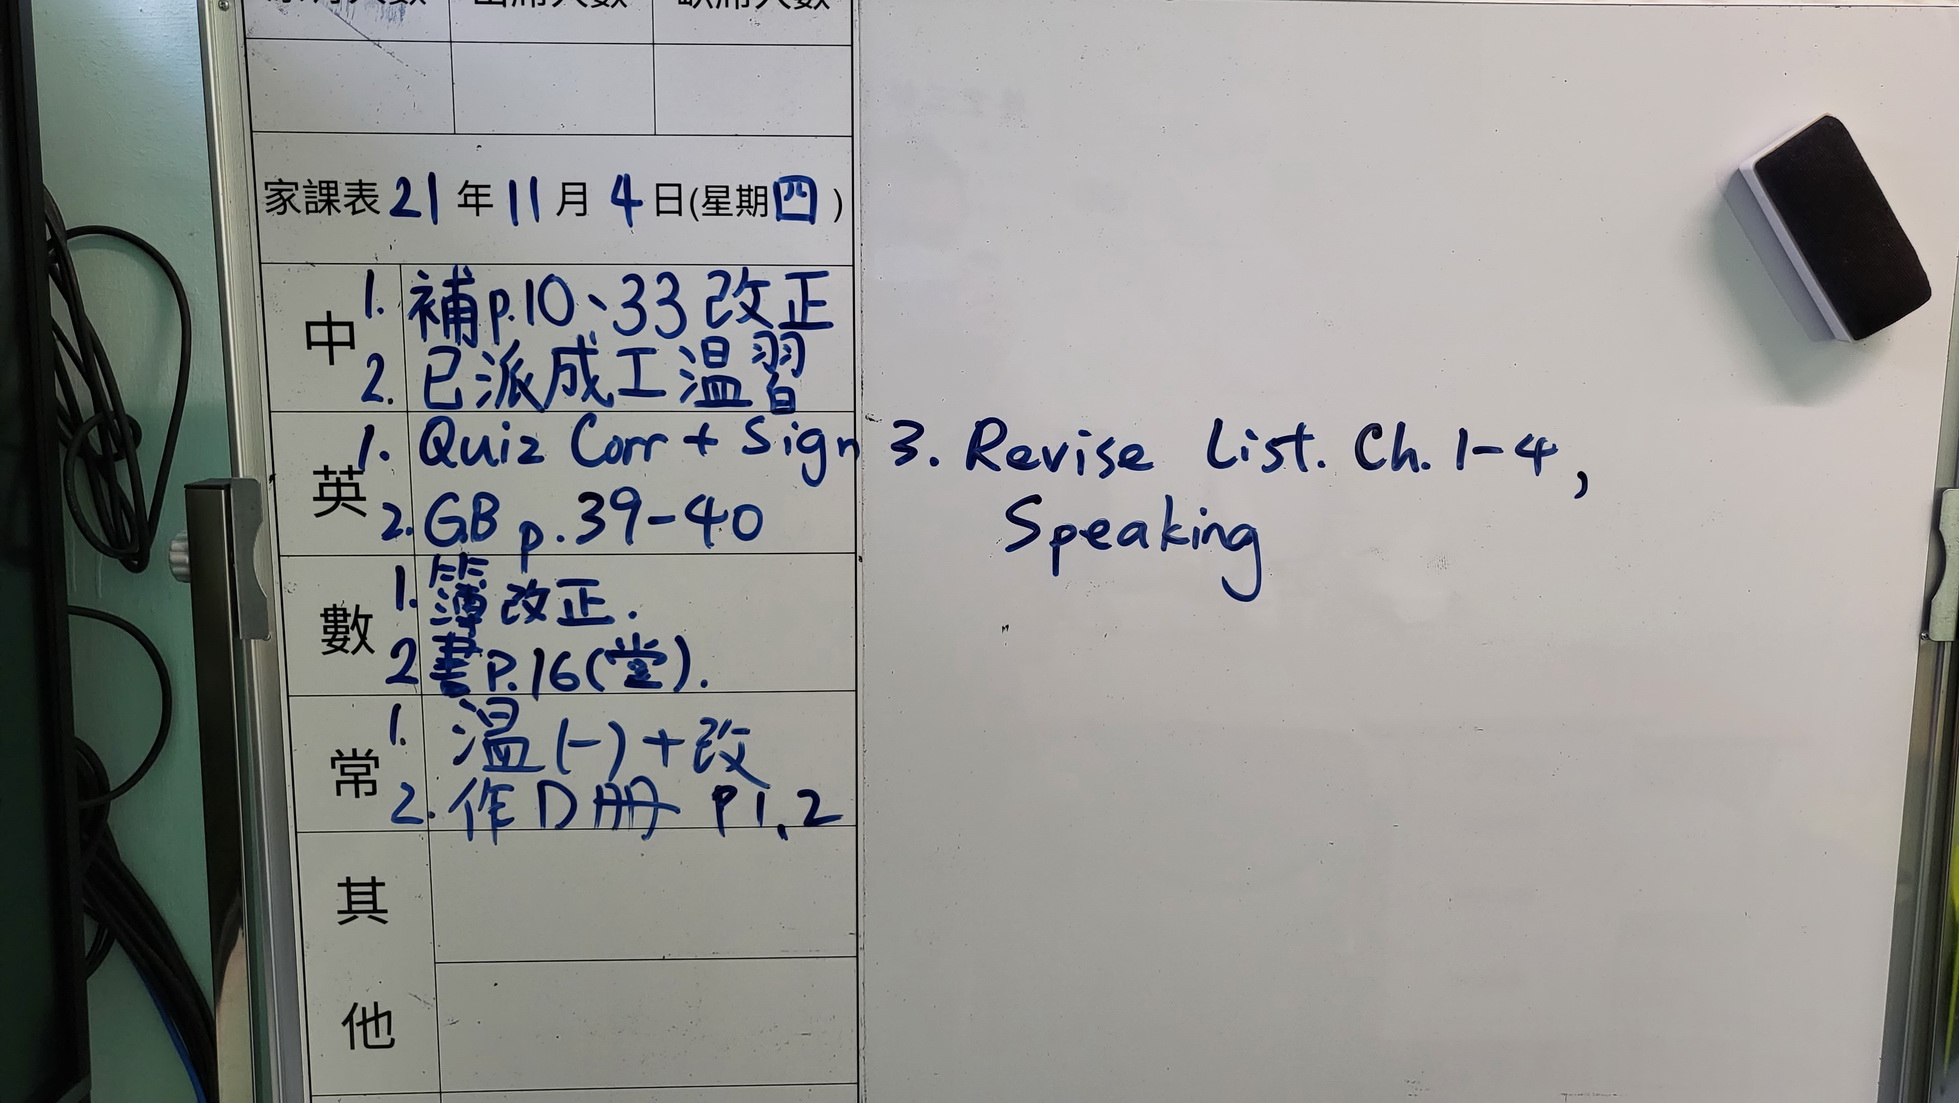 應到人數 出席人數 缺席人數
家課表 21 年 11 月 4 日(星期四)
中
1. 補p.10、33 改正
2. 已派成工温習
英
1. Quiz Corr + Sign
2. GB p.39-40
3. Revise List. Ch. 1-4,
Speaking
數
1. 簿改正.
2 書P.16(堂).
常
1. 温(一)+改
2. 作D冊 P1,2
其
他